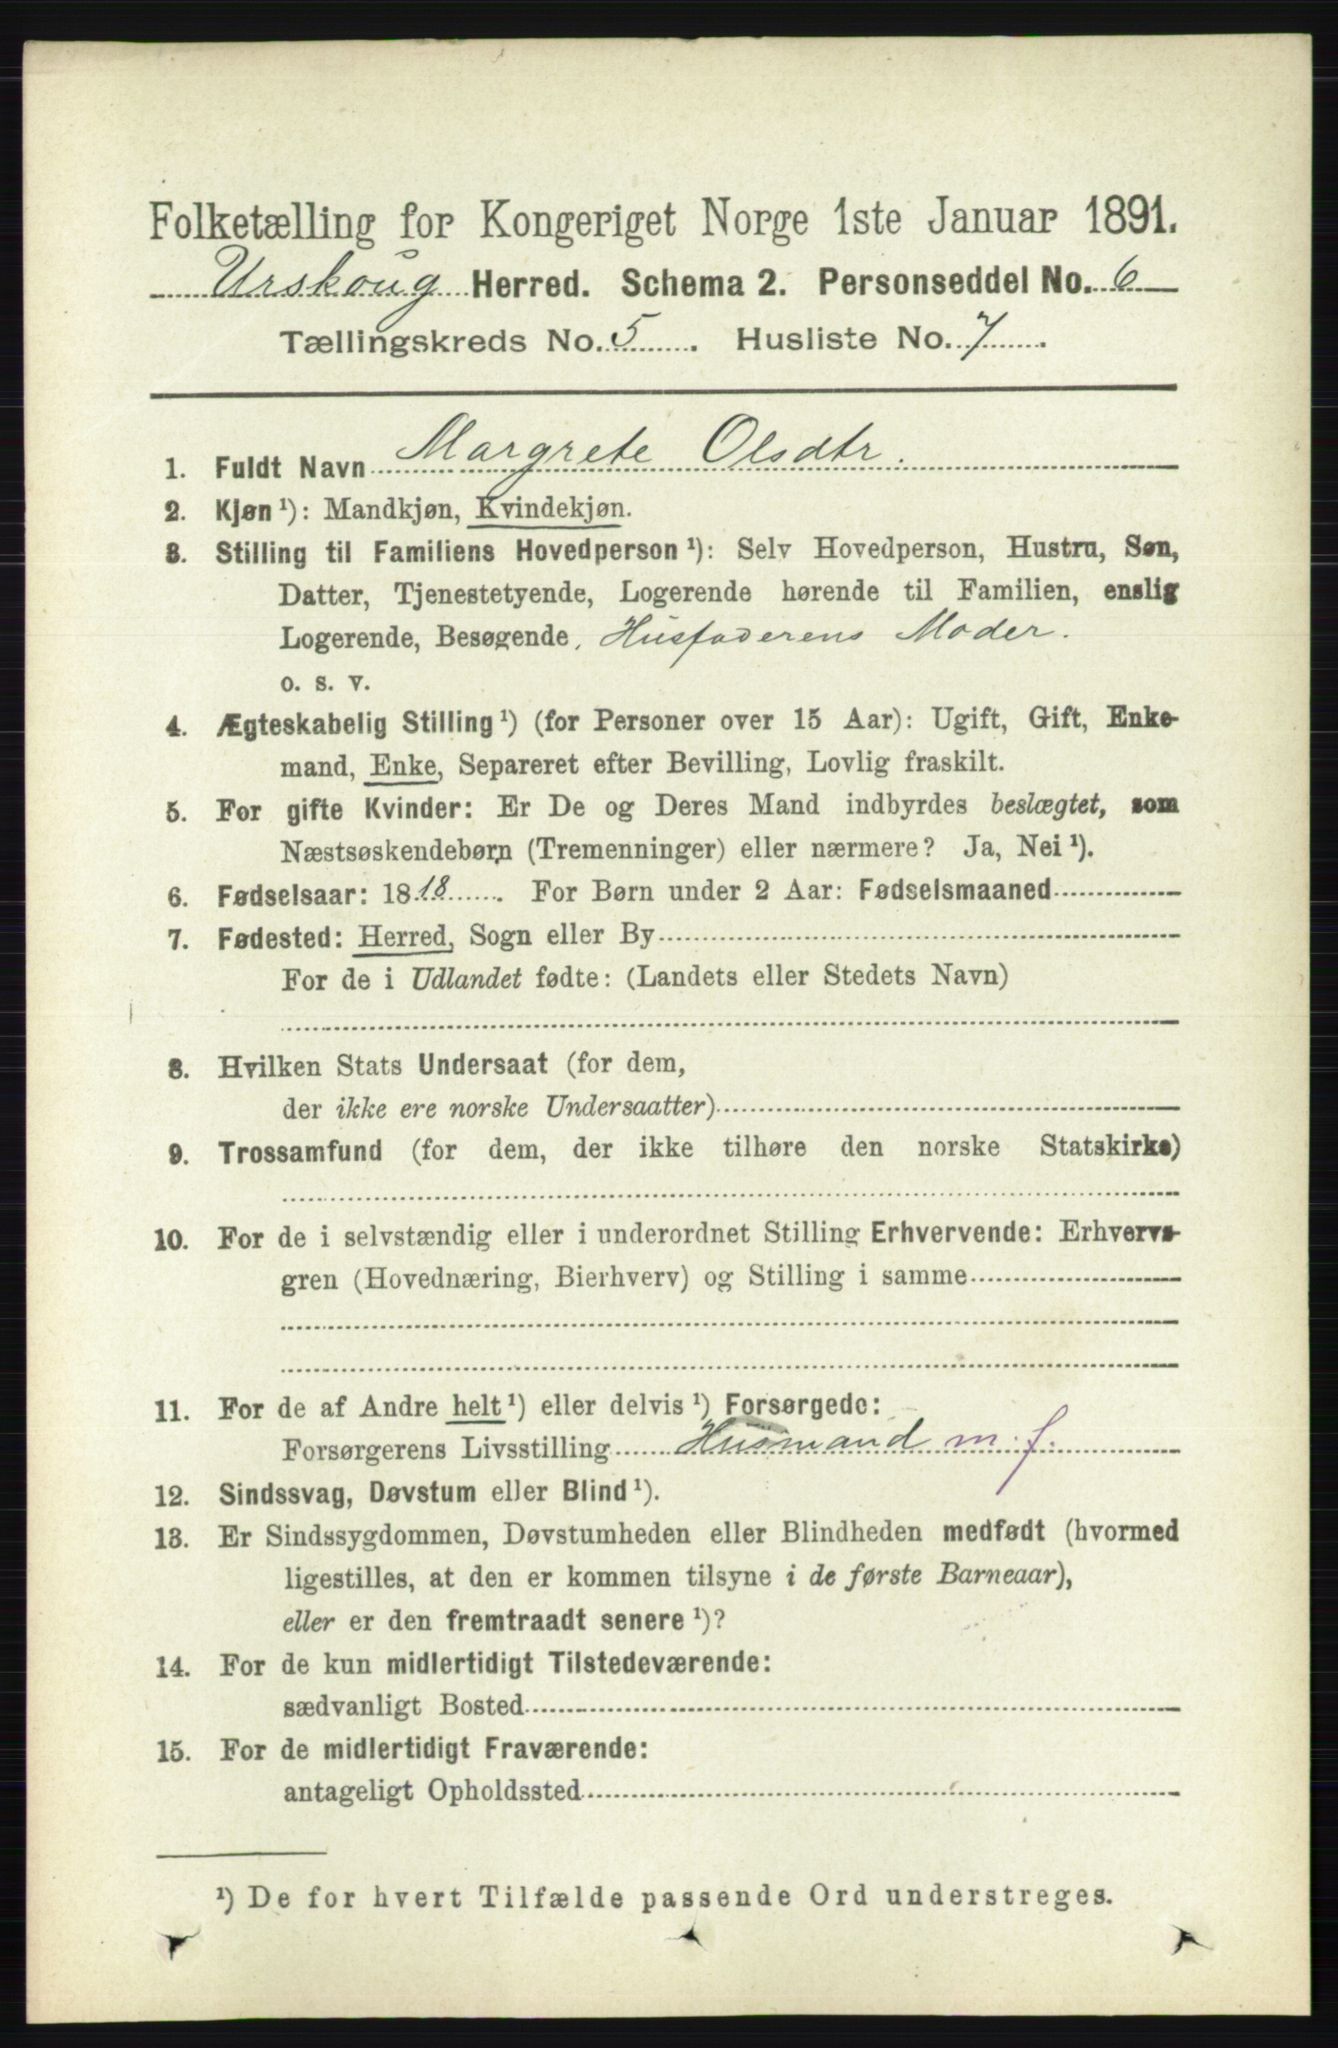 Folketælling for Kongeriget Norge 1ste Januar 1891.
Urskoug Herred. Schema 2. Personseddel No. 6
Tællingskreds No. 5. Husliste No. 7.
1. Fuldt Navn Margrete Olsdtr.
2. Kjøn ¹): Mandkjøn, Kvindekjøn.
3. Stilling til Familiens Hovedperson ¹): Selv Hovedperson, Hustru, Søn,
Datter, Tjenestetyende, Logerende hørende til Familien, enslig
Logerende, Besøgende, Husfaderens Moder.
o. s. v.
4. Ægteskabelig Stilling ¹) (for Personer over 15 Aar): Ugift, Gift, Enke-
mand, Enke, Separeret efter Bevilling, Lovlig fraskilt.
5. For gifte Kvinder: Er De og Deres Mand indbyrdes beslægtet, som
Næstsøskendebørn (Tremenninger) eller nærmere? Ja, Nei ¹).
6. Fødselsaar: 1818. For Børn under 2 Aar: Fødselsmaaned
7. Fødested: Herred, Sogn eller By
For de i Udlandet fødte: (Landets eller Stedets Navn)
8. Hvilken Stats Undersaat (for dem,
der ikke ere norske Undersaatter)
9. Trossamfund (for dem, der ikke tilhøre den norske Statskirke)
10. For de i selvstændig eller i underordnet Stilling Erhvervende: Erhvervs-
gren (Hovednæring, Bierhverv) og Stilling i samme
11. For de af Andre helt ¹) eller delvis ¹) Forsørgede:
Forsørgerens Livsstilling Husmand m. j.
12. Sindssvag, Døvstum eller Blind ¹).
13. Er Sindssygdommen, Døvstumheden eller Blindheden medfødt (hvormed
ligestilles, at den er kommen tilsyne i de første Barneaar),
eller er den fremtraadt senere ¹)?
14. For de kun midlertidigt Tilstedeværende:
sædvanligt Bosted
15. For de midlertidigt Fraværende:
antageligt Opholdssted
¹) De for hvert Tilfælde passende Ord understreges.